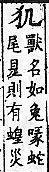 犰
獸名如兔喙蛇
尾見則有蝗災